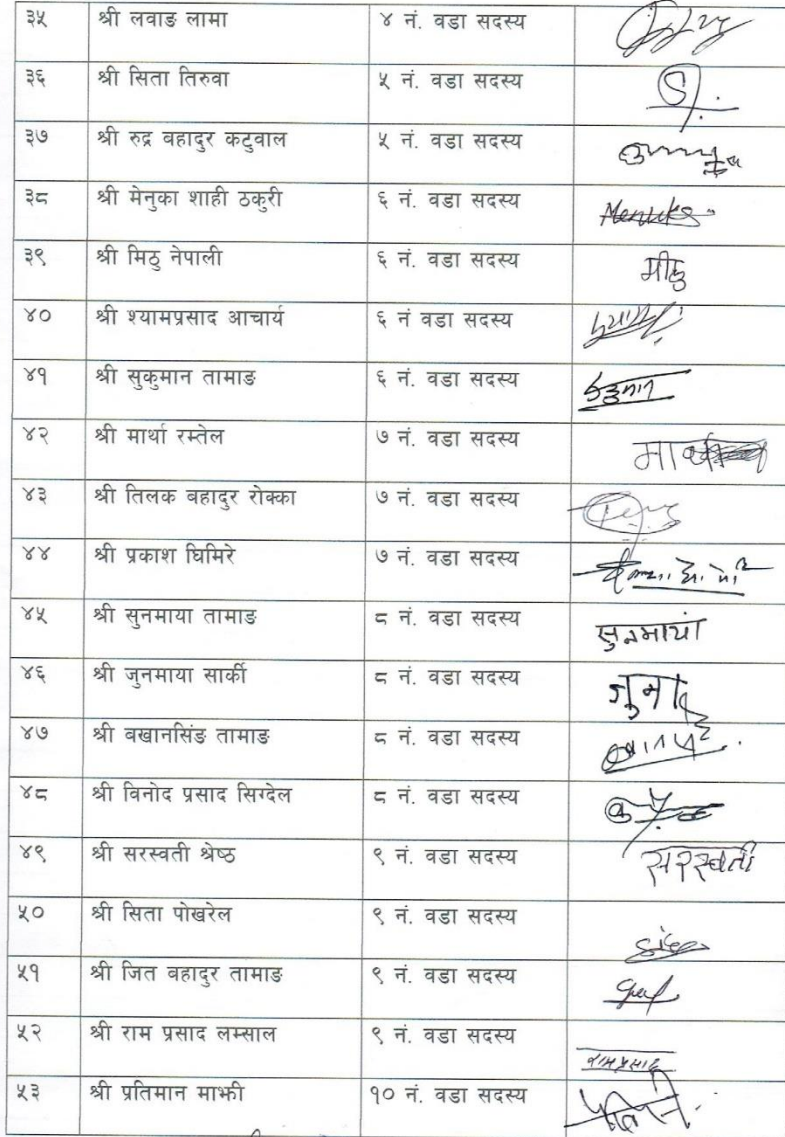 ३५ श्री लवाङ लामा ४ नं. वडा सदस्य
३६ श्री सिता तिरुवा ५ नं. वडा सदस्य
३७ श्री रुद्र वहादुर कटुवाल ५ नं. वडा सदस्य
३८ श्री मेनुका शाही ठकुरी ६ नं. वडा सदस्य Menuka
३९ श्री मिठु नेपाली ६ नं. वडा सदस्य मीठु
४० श्री श्यामप्रसाद आचार्य ६ नं वडा सदस्य
४१ श्री सुकुमान तामाङ ६ नं. वडा सदस्य
४२ श्री मार्था रम्तेल ७ नं. वडा सदस्य
४३ श्री तिलक बहादुर रोक्का ७ नं. वडा सदस्य
४४ श्री प्रकाश घिमिरे ७ नं. वडा सदस्य
४५ श्री सुनमाया तामाङ ८ नं. वडा सदस्य सुनमाया
४६ श्री जुनमाया सार्की ८ नं. वडा सदस्य
४७ श्री वखानसिंङ तामाङ ८ नं. वडा सदस्य
४८ श्री विनोद प्रसाद सिग्देल ८ नं. वडा सदस्य
४९ श्री सरस्वती श्रेष्ठ ९ नं. वडा सदस्य सरस्वती
५० श्री सिता पोखरेल ९ नं. वडा सदस्य
५१ श्री जित वहादुर तामाङ ९ नं. वडा सदस्य
५२ श्री राम प्रसाद लम्साल ९ नं. वडा सदस्य रामप्रसाद
५३ श्री प्रतिमान माझी १० नं. वडा सदस्य